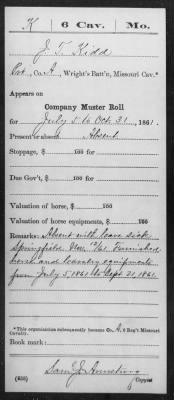 K | 6 Cav. | Mo.
J. T. Kidd
Pvt., Co. A, Wright's Batt'n, Missouri Cav.*
Appears on
Company Muster Roll
for July 5 to Oct. 31, 1861.
Present or absent Absent
Stoppage, $ 100 for
Due Gov't, $ 100 for
Valuation of horse, $ 100
Valuation of horse equipments, $ 100
Remarks: Absent with leave sick
Springfield, Mo. Furnished
horse and cavalry equipments
from July 5, 1861 to Sept. 21, 1861.
*This organization subsequently became Co. A, 6 Reg't Missouri
Cavalry.
Book mark:
Sam J. Armstrong
(635) Copyist